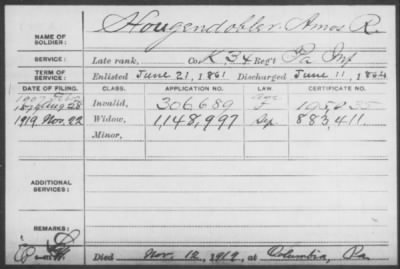 NAME OF SOLDIER: Hougendobler, Amos R.
SERVICE: Late rank, Co. K, 34 Reg't Pa Inf
TERM OF SERVICE: Enlisted June 21, 1861 Discharged June 11, 1864
DATE OF FILING. CLASS. APPLICATION NO. LAW. CERTIFICATE NO.
1879 Aug 28 Invalid, 306,689
1919 Nov. 22 Widow, 1,148,997 883,411.
Minor,
ADDITIONAL SERVICES:
REMARKS:
Died Nov. 12, 1919, at Columbia, Pa